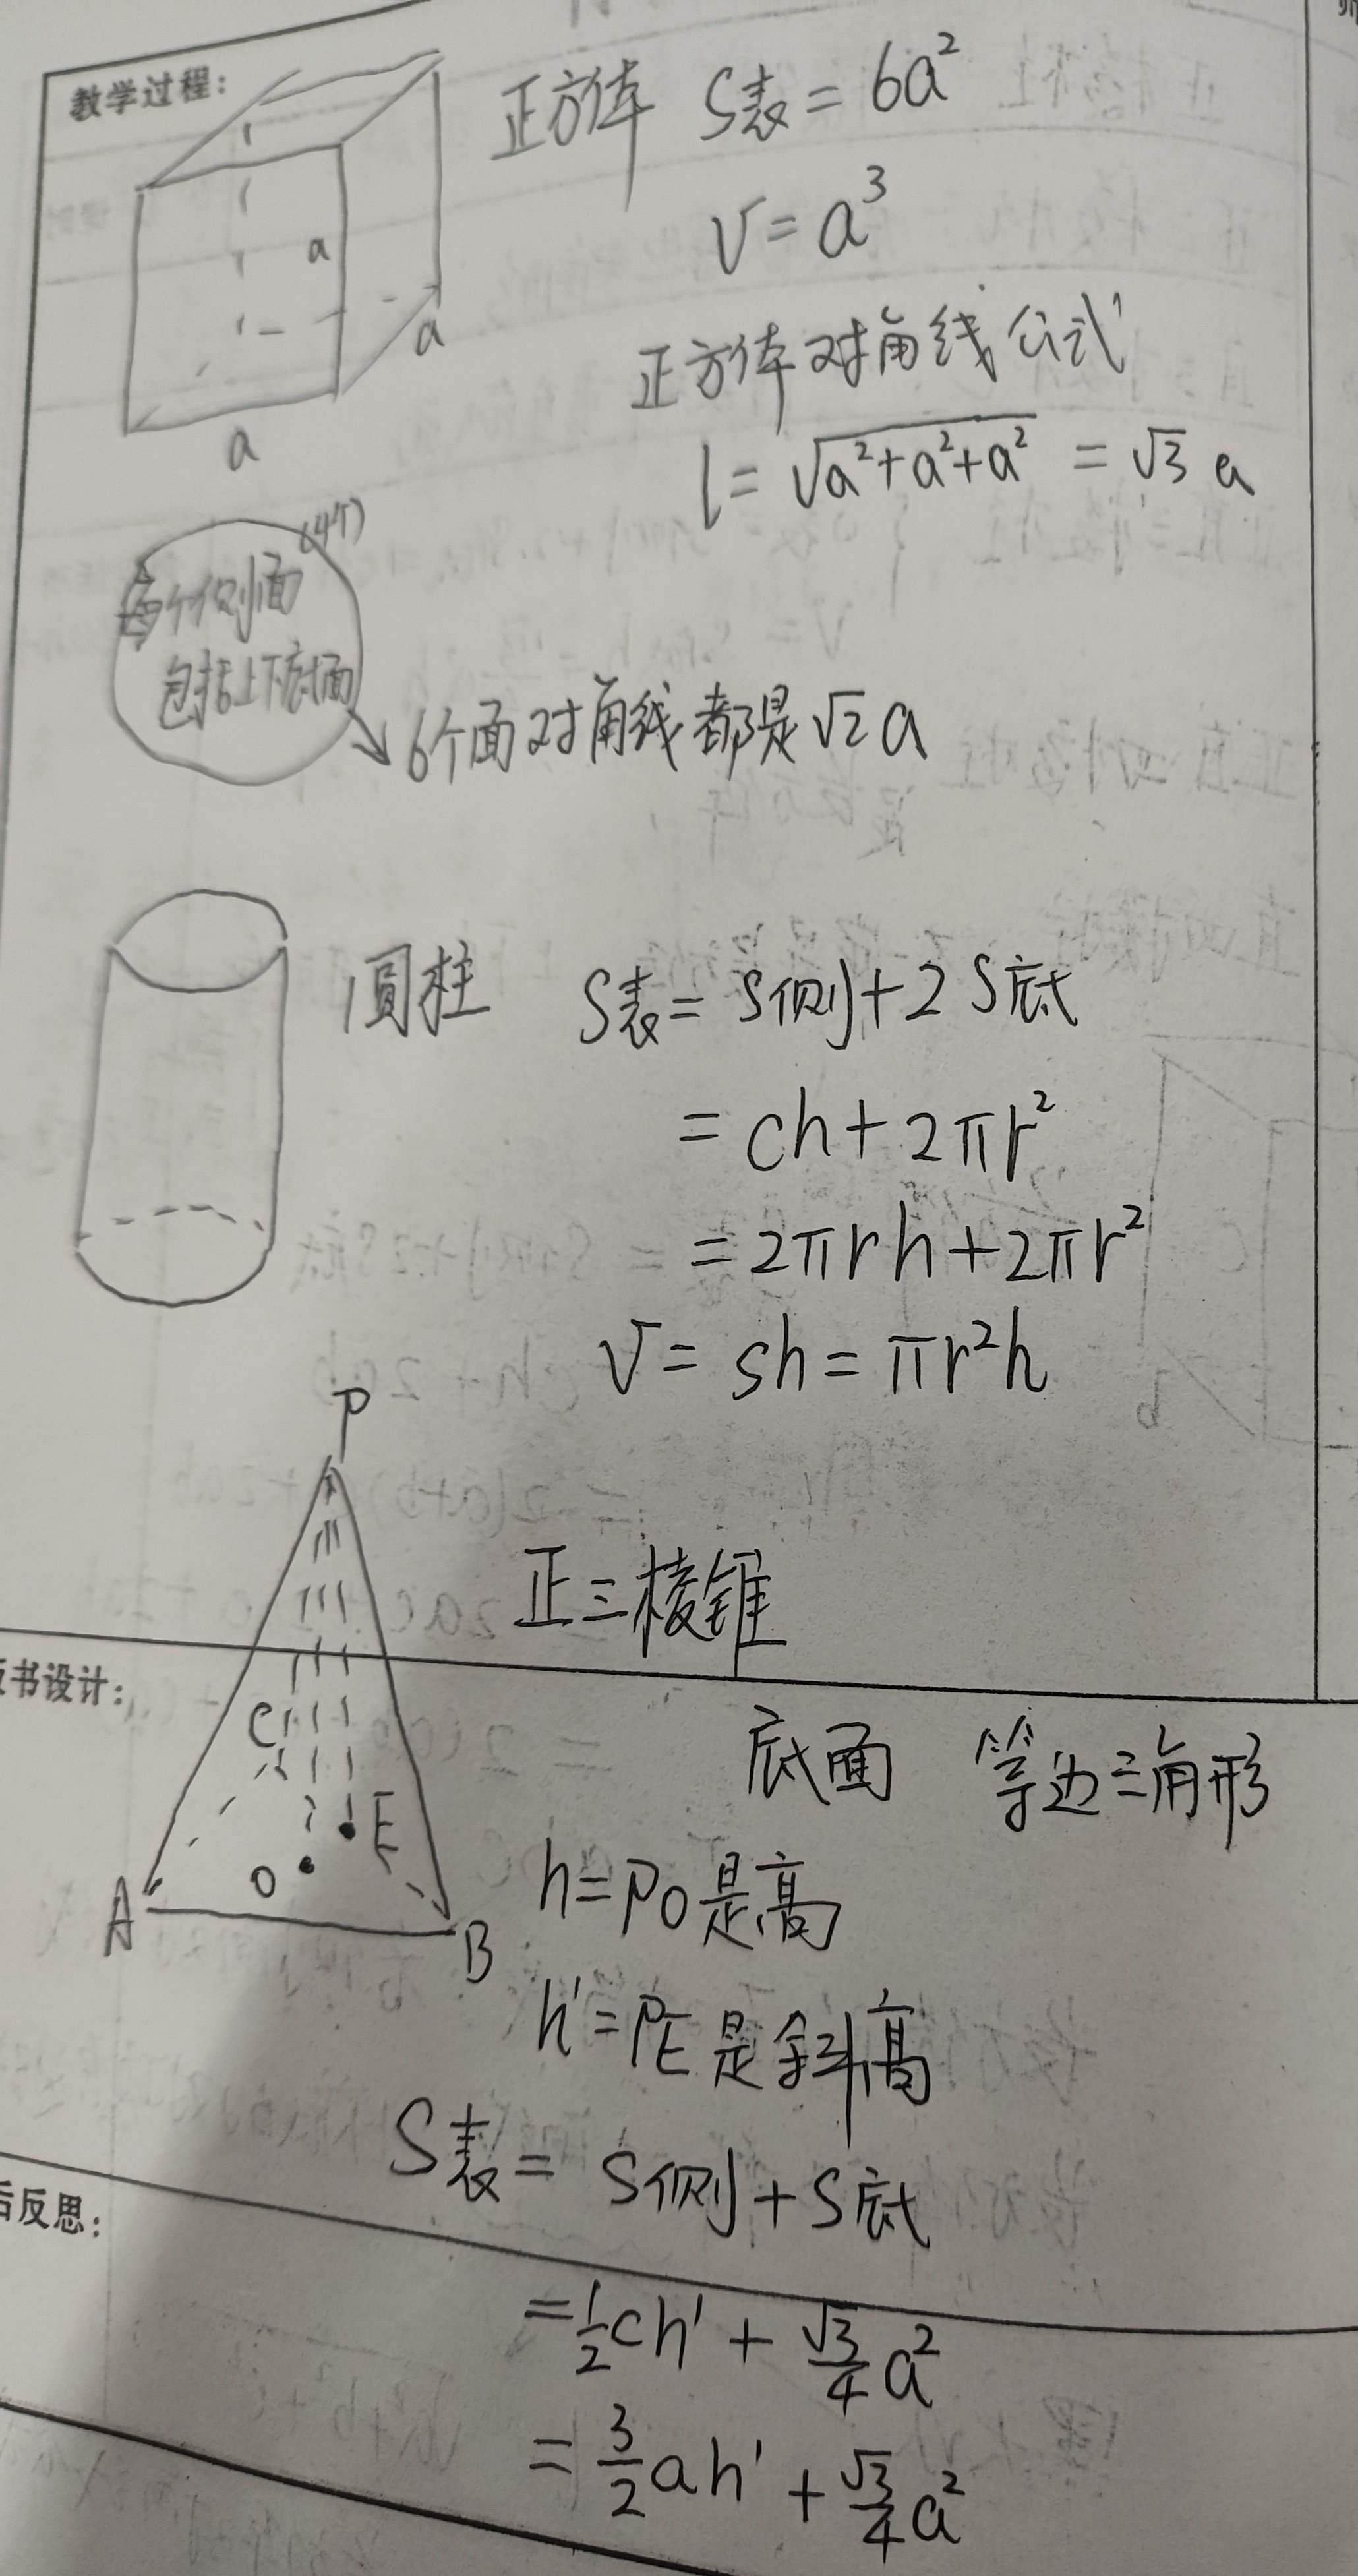 教学过程:
正方体 S表 = 6a²
V = a³
a
a
a
正方体对角线公式
l = √(a²+a²+a²) = √3 a
(4个)
每个侧面
包括上下底面
6个面对角线都是√2 a
圆柱 S表 = S侧 + 2S底
= ch + 2πr²
= 2πrh + 2πr²
V = sh = πr²h
P
正三棱锥
书设计:
C
底面 等边三角形
E
O
A
B
h = PO是高
h' = PE是斜高
S表 = S侧 + S底
后反思:
= 1/2 ch' + √3/4 a²
= 3/2 ah' + √3/4 a²